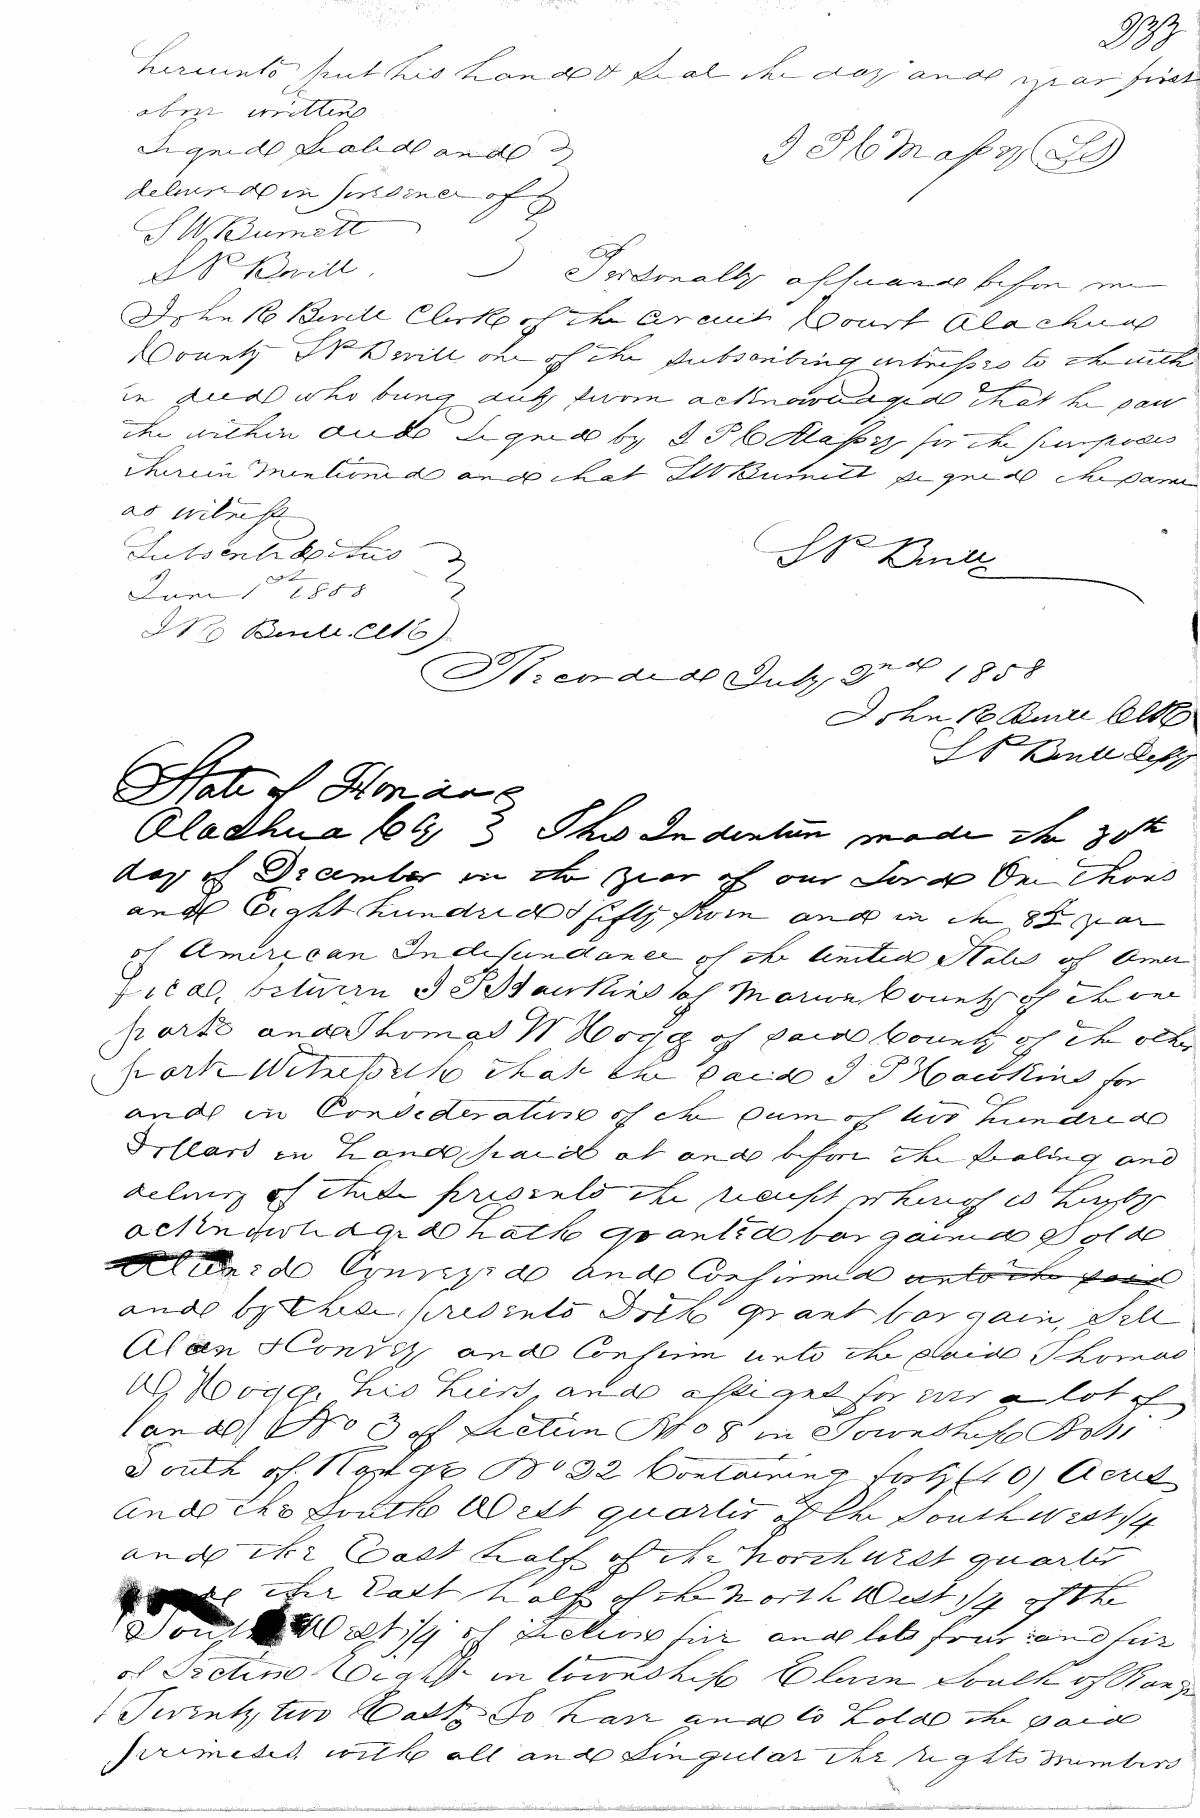 233
hereunto put his hand & seal the day and year first
above written
Signed Sealed and
delivered in presence of
J P C Massey (LS)
S W Burnett
S P Bevill.
Personally appeared before me
John R Bevill Clerk of the Circuit Court Alachua
County S P Bevill one of the subscribing witnesses to the with
in deed who being duly sworn acknowledged that he saw
the within deed signed by J P C Massey for the purposes
therein mentioned and that S W Burnett signed the same
as witness
Subscribed this
June 1st 1858
S P Bevill
J R Bevill. Clk
Recorded July 2nd 1858
John R Bevill Clk
S P Bevill Depy
State of Florida
Alachua Cty This Indenture made the 30th
day of December in the year of our Lord One Thous
and Eight hundred & fifty seven and in the 82 year
of American Independance of the United States of Amer
ica, between J P Hawkins of Marion County of the one
part and Thomas W Hogg of said County of the other
part Witnesseth that the said J P Hawkins for
and in Consideration of the sum of two hundred
Dollars in hand paid at and before the Sealing and
delivery of these presents the receipt whereof is hereby
acknowledged hath granted bargained Sold
Aliened Conveyed and Confirmed unto the said
and by these presents Doth grant bargain, Sell
Alien & Convey and Confirm unto the said Thomas
W Hogg, his heirs, and assigns for ever a lot of
land No 3 of Section No 8 in Township No 11
South of Range No 22 Containing forty (40) Acres
and the South West quarter of the South west 1/4
and the East half of the North west quarter
the East half of the North West 1/4 of the
South West 1/4 of section five and lots four and five
of Section Eight in township Eleven South of Range
Twenty two East, To have and to hold the said
premises, with all and Singular the rights members